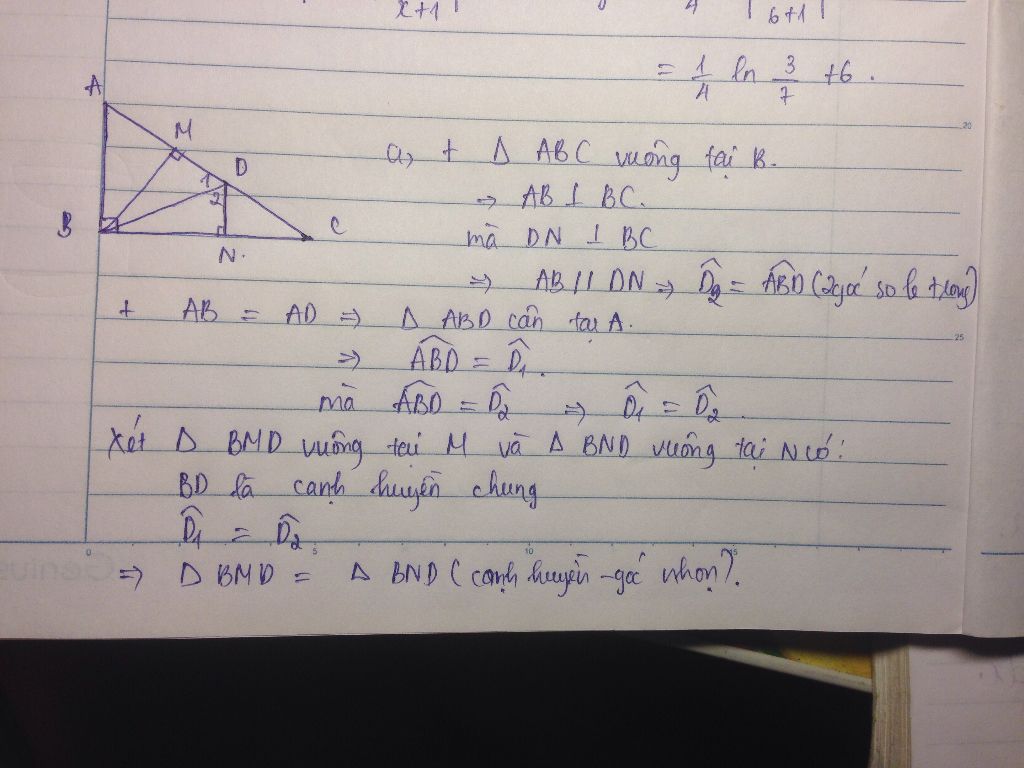 x+1 4 6+1
= 1/4 ln 3/7 + 6.
A
M
D
1
2
B
N.
C
a, + Δ ABC vuông tại B.
=> AB ⊥ BC.
mà DN ⊥ BC
=> AB // DN => D̂2 = ABD̂ (2 góc so le trong)
+ AB = AD => Δ ABD cân tại A.
=> ABD̂ = D̂1.
mà ABD̂ = D̂2 => D̂1 = D̂2.
Xét Δ BMD vuông tại M và Δ BND vuông tại N có:
BD là cạnh huyền chung
D̂1 = D̂2
=> Δ BMD = Δ BND (cạnh huyền - góc nhọn).
20
25
0 5 10 15